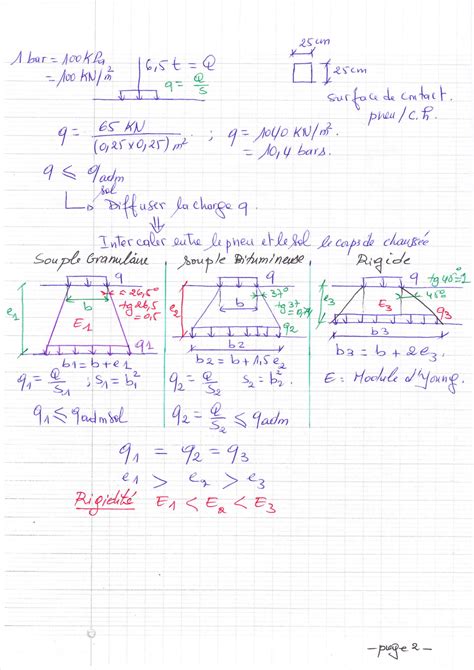 25 cm
1 bar = 100 KPa
= 100 KN/m²
6,5 t = Q
q = Q/S
25 cm
surface de contact.
pneu / c.h.
q = 65 KN / (0,25 x 0,25) m² ; q = 1040 KN/m².
= 10,4 bars.
q ≤ q adm sol
↳ Diffuser la charge q.
⇓
Intercaler entre le pneu et le sol le corps de chaussée
Souple Granulaire
souple Bitumineuse
Rigide
q
α = 26,5°
tg 26,5 = 0,5
b
e1
E1
q1
b1 = b + e1
q1 = Q/S1 ; S1 = b1²
q1 ≤ q adm sol
q
37°
tg 37 = 0,74
b
e2
q2
b2
b2 = b + 1,5 e2
q2 = Q/S2 S2 = b2².
q2 = Q/S2 ≤ q adm
q
tg 45° = 1
45°
e3
E3
q3
b3
b3 = b + 2e3.
E : Module d'Young.
q1 = q2 = q3
e1 > e2 > e3
Rigidité E1 < E2 < E3
- page 2 -